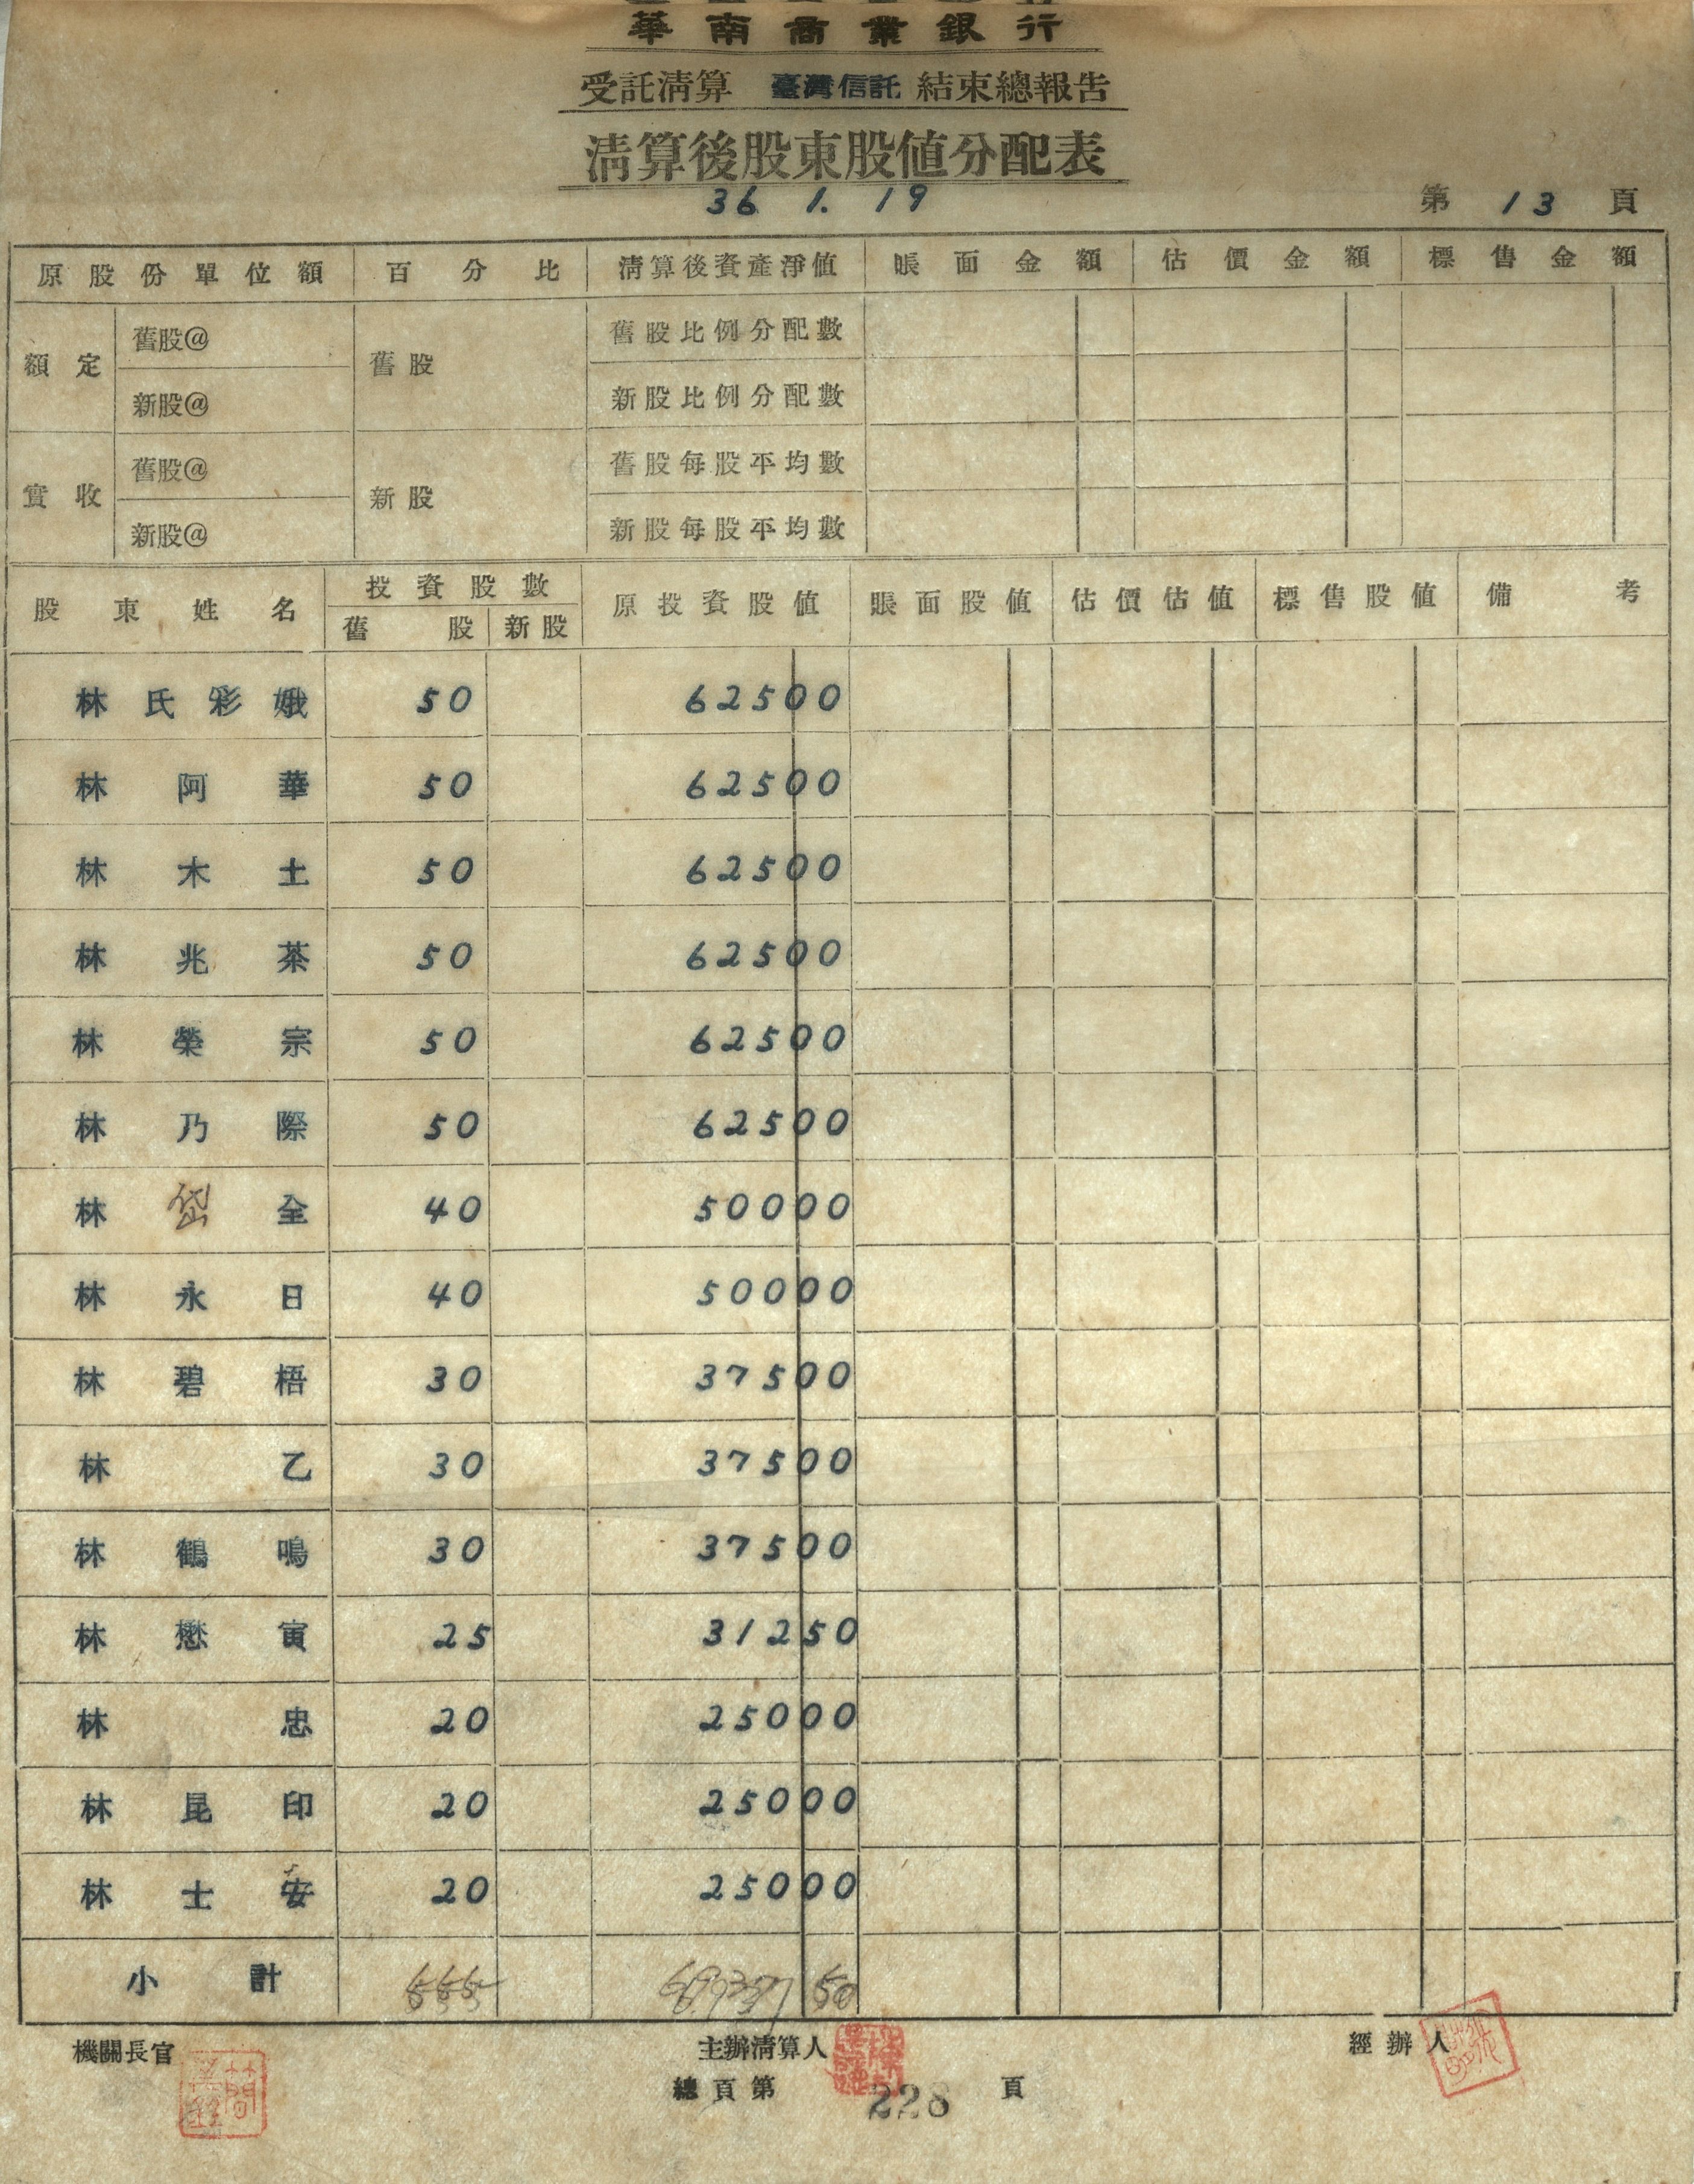 華南商業銀行
受託清算 臺灣信託 結束總報告
清算後股東股值分配表
36. 1. 19
第 13 頁
原股份單位額 百分比 清算後資產淨值 賬面金額 估價金額 標售金額
額定 舊股@ 舊股 舊股比例分配數
新股@ 新股比例分配數
實收 舊股@ 新股 舊股每股平均數
新股@ 新股每股平均數
股東姓名 投資股數 原投資股值 賬面股值 估價估值 標售股值 備考
舊股 新股
林氏彩娥 50 62500
林阿華 50 62500
林木土 50 62500
林兆茶 50 62500
林榮宗 50 62500
林乃際 50 62500
林岱全 40 50000
林永日 40 50000
林碧梧 30 37500
林乙 30 37500
林鶴鳴 30 37500
林懋寅 25 31250
林忠 20 25000
林昆印 20 25000
林士安 20 25000
小計 555
機關長官 主辦清算人 經辦人
總頁第 228 頁